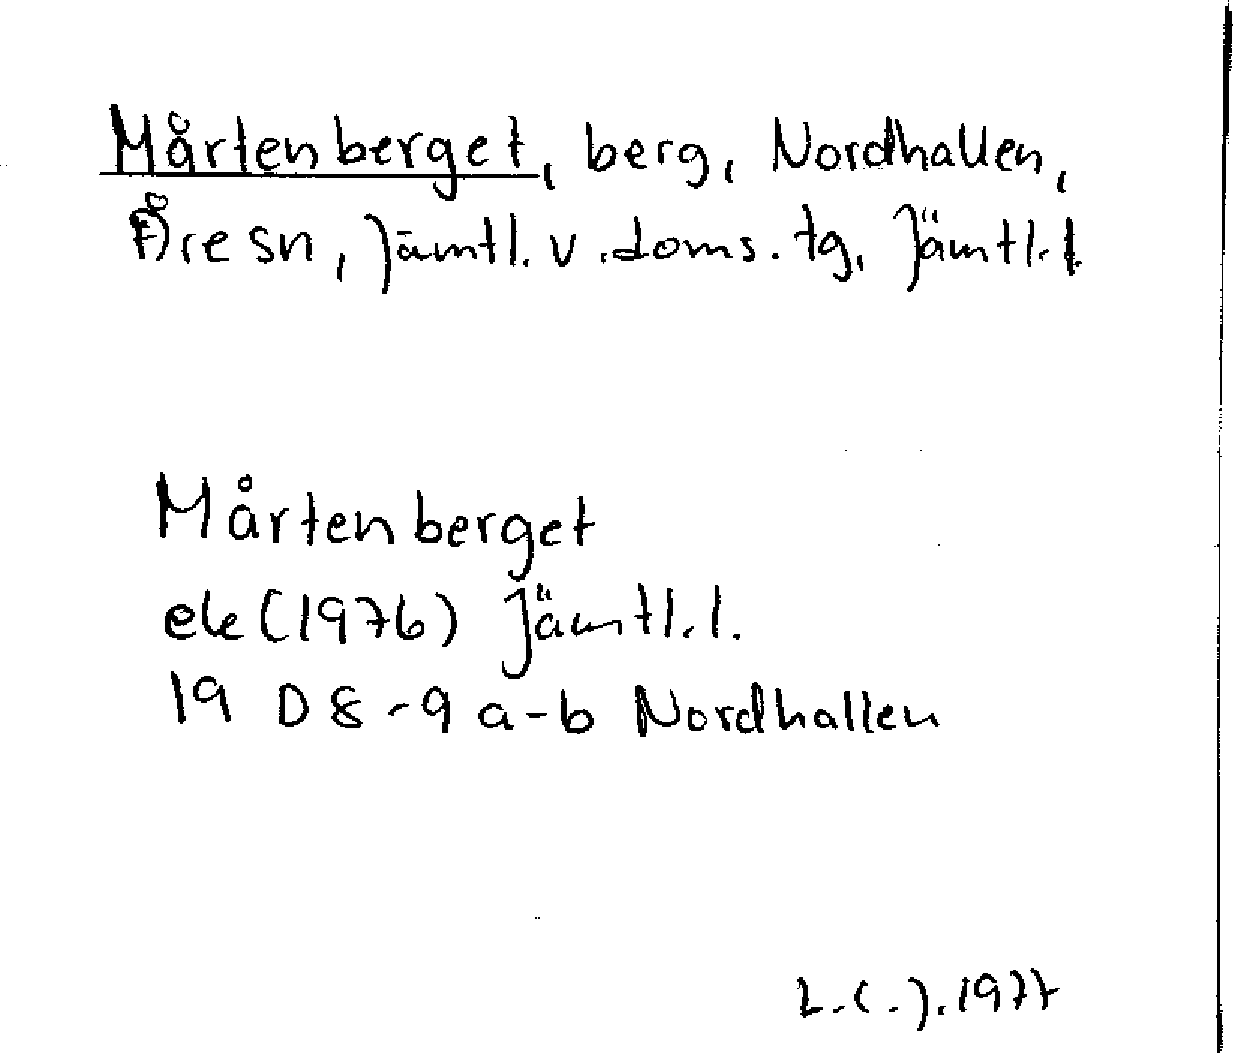 Mårtenberget, berg, Nordhallen,
Åre sn, Jämtl. v. doms. tg, Jämtl. l
Mårtenberget
ek (1976) Jämtl. l.
19 D 8-9 a-b Nordhallen
1977